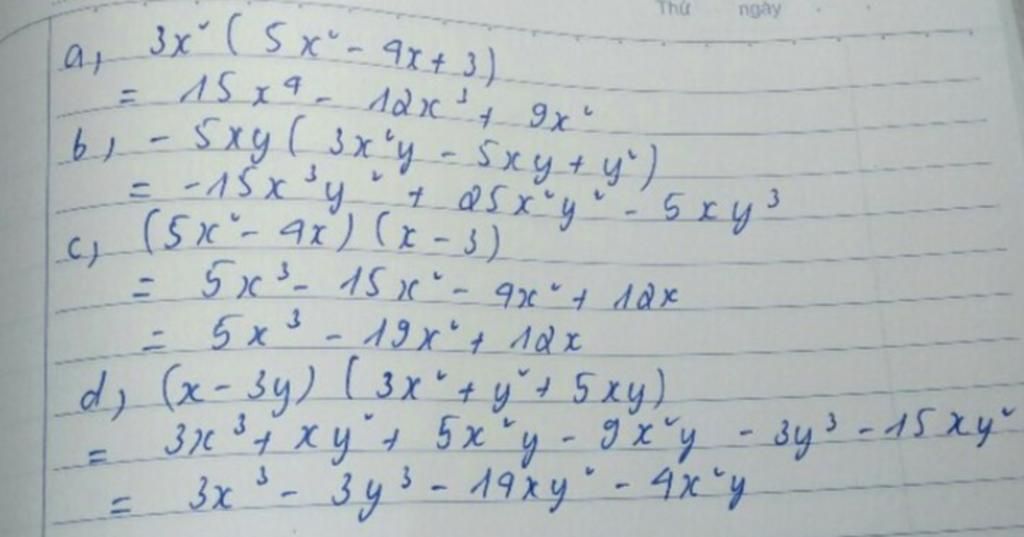 Thứ ngày
a, 3x² ( 5x² - 4x + 3)
= 15x⁴ - 12x³ + 9x²
b, - 5xy ( 3x²y - 5xy + y²)
= -15x³y² + 25x²y² - 5xy³
c, (5x² - 4x) (x - 3)
= 5x³ - 15x² - 4x² + 12x
= 5x³ - 19x² + 12x
d, (x - 3y) (3x² + y² + 5xy)
= 3x³ + xy² + 5x²y - 9x²y - 3y³ - 15xy²
= 3x³ - 3y³ - 14xy² - 4x²y